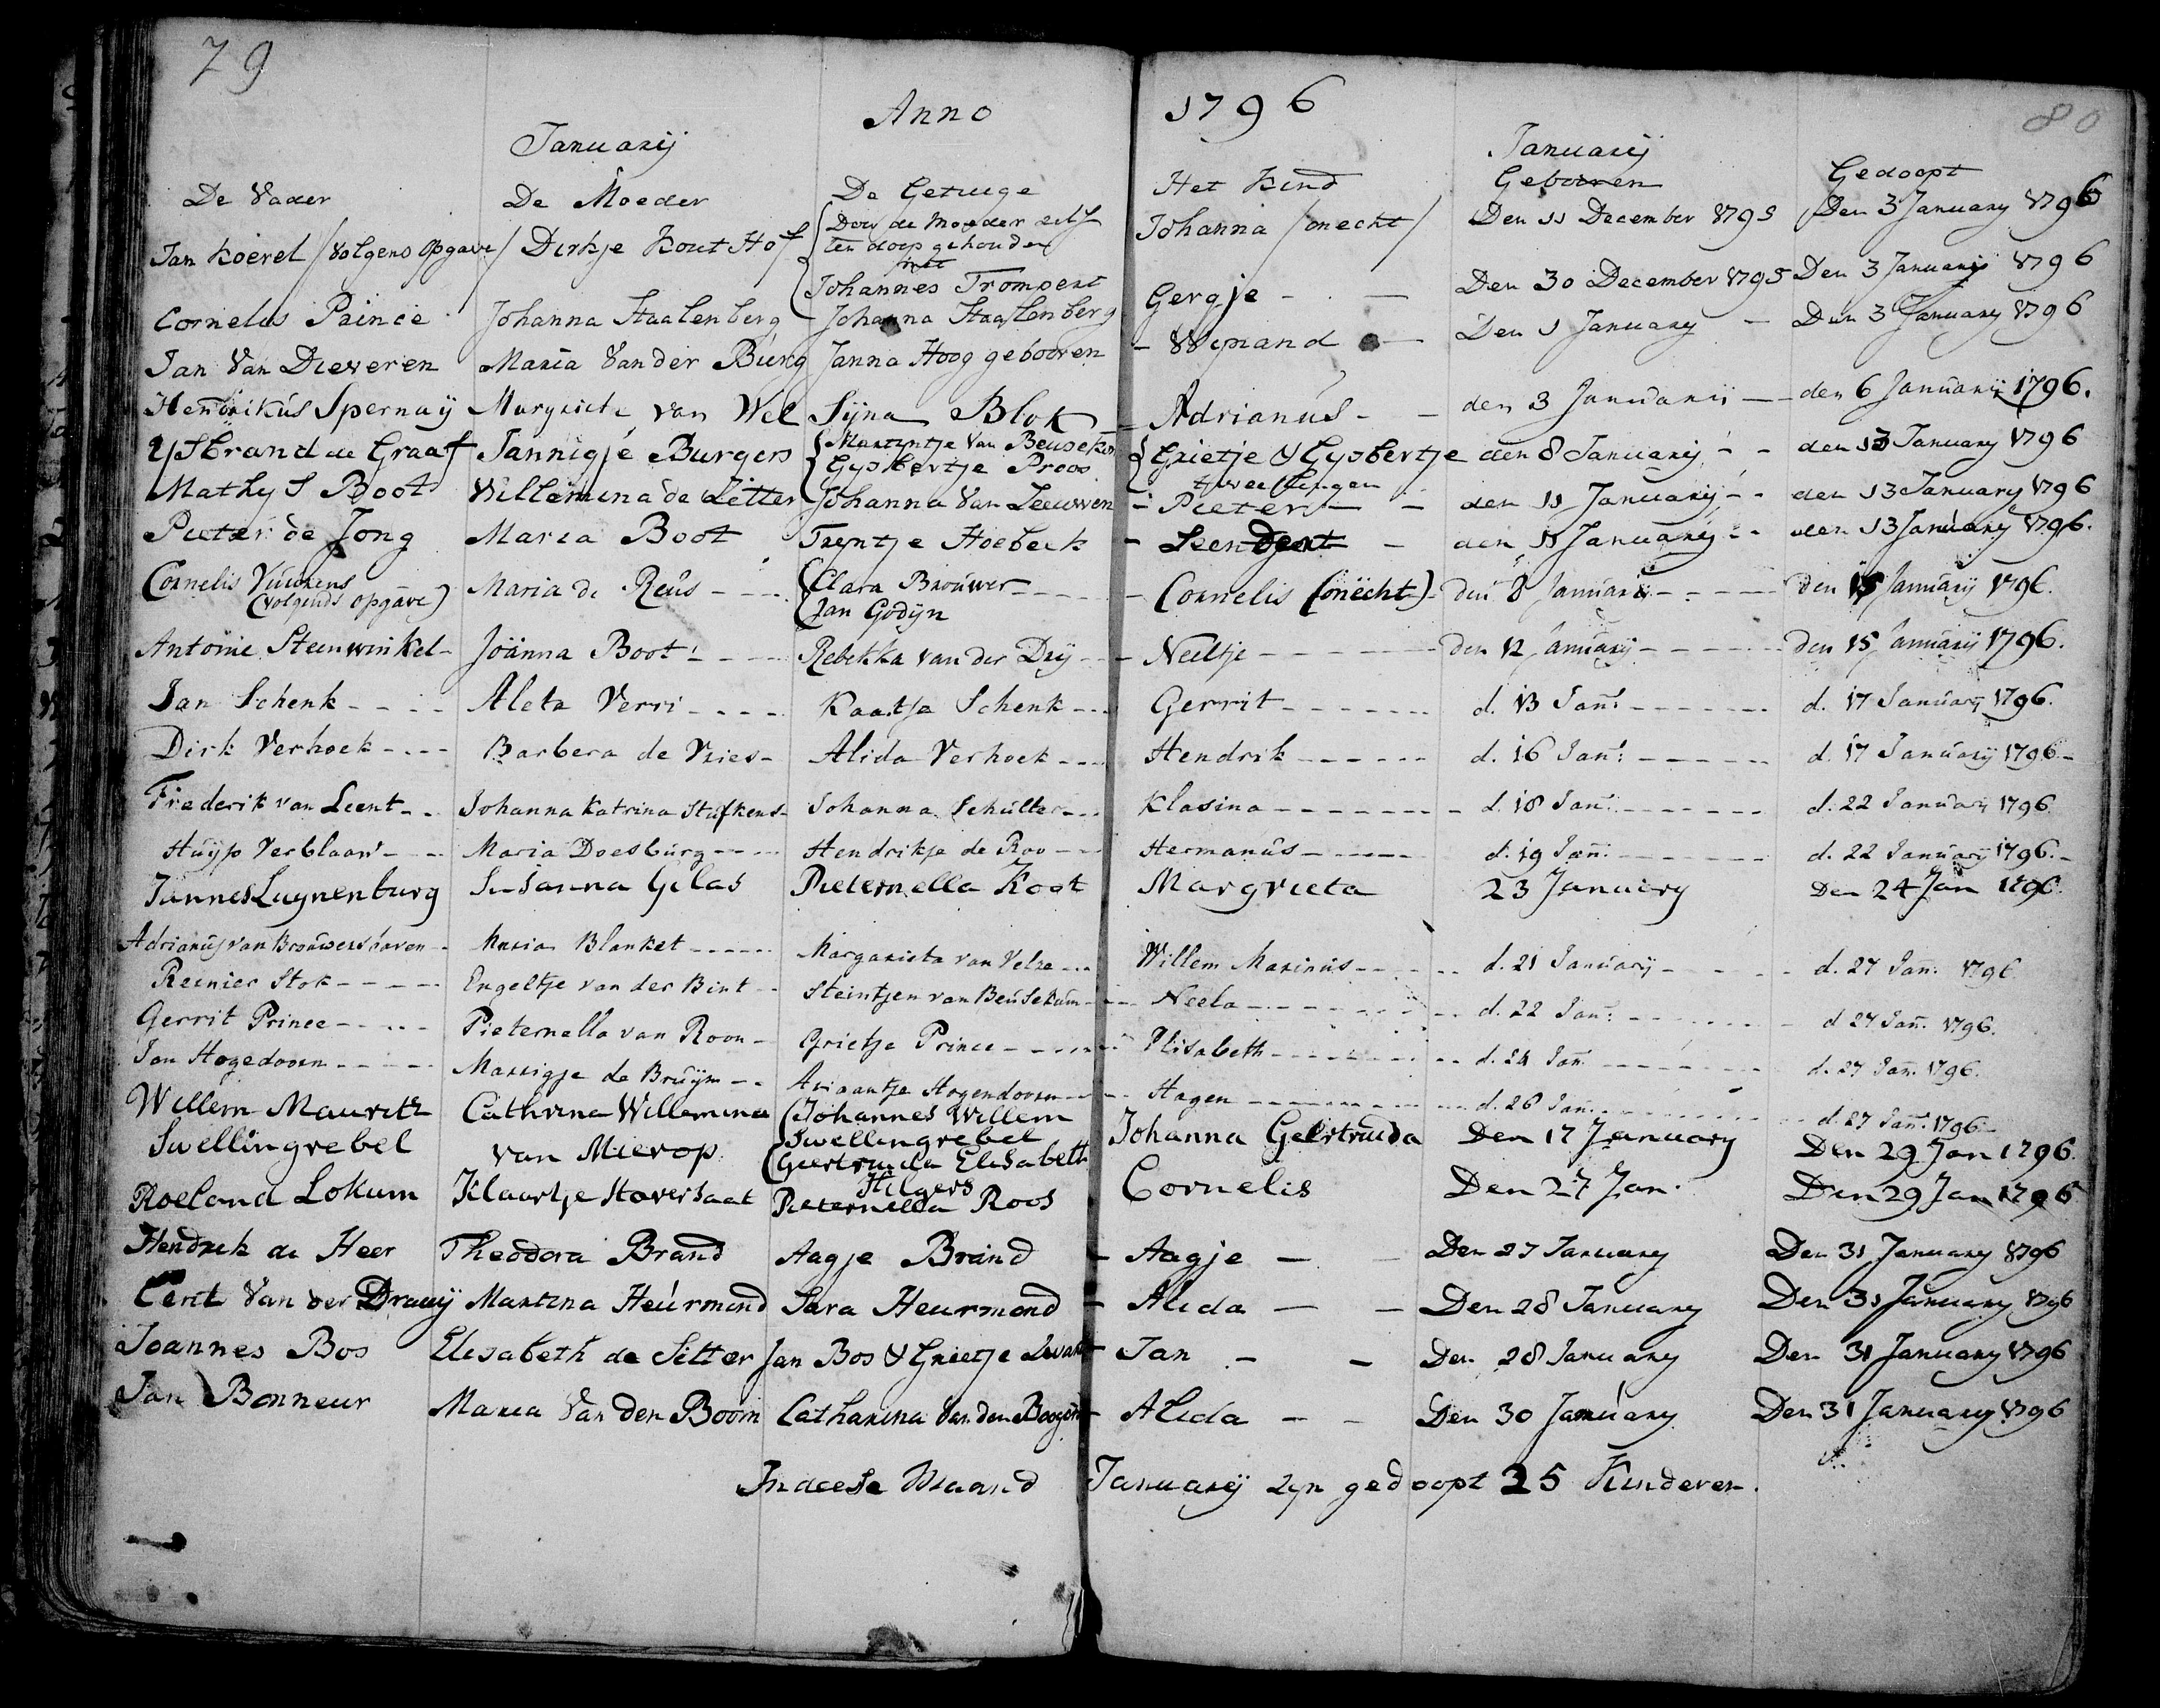 79
80
Anno 1796
Januarij Januarij
De Vader De Moeder De Getuige Het Kind Gebooren Gedoopt
Jan Koerel / volgens opgave / Dirkje Kout Hof { Door de Moeder zelf Johanna / onecht / Den 11 December 1795 Den 3 January 1796
ten doop gehouden
met
Johannes Trompert
Cornelus Prince Johanna Staalenberg Johanna Staalenberg Gergje - - Den 30 December 1795 Den 3 January 1796
Jan Van Dieveren Maria Van der Burg Janna Hooggebooren - Wynand - Den 1 January - Den 3 January 1796
Hendrikus Spernaij Margriete van Wel Sijna Blok - Adrianus - - den 3 Januarij - - den 6 Januarij 1796.
Ysbrand de Graaf Jannigje Burgers { Martyntje Van Beusekom { Grietje & Gysbertje den 8 Januarij - - den 13 January 1796
Gysbertje Proos tweelingen
Mathys Boot Willemina de Zitter Johanna Van Leeuwen - Pieter - - den 11 January - - den 13 January 1796
Pieter de Jong Maria Boot Tryntje Hoebeek - Leendert - den 11 January - - den 13 January 1796.
Cornelis (volgends opgave) Maria de Reus - - - (Clara Brouwer - - - - Cornelis (onëcht) - den 8 Januarij - - - den 15 Januarij 1796.
(Jan Godijn
Antoine Steenwinkel - Joänna Boot - - - Rebekka van der Drij - - - Neeltje - - - - - den 12 Januarij - - - - den 15 Januarij 1796.
Jan Schenk - - - - Aleta Verri - - - - Kaatje Schenk - - - Gerrit - - - - - - d. 13 Jan: - - - - - - d. 17 Januarij 1796.
Dirk Verhoek - - - - Barbera de Vries - Alida Verhoek - - - Hendrik - - - - - - d. 16 Jan: - - - - - - d. 17 Januarij 1796 -
Frederik van Leent - - Johanna Katrina Stufkens - Johanna Schulter - - - Klasina - - - - - - - d. 18 Jan: - - - - - - d. 22 Januarij 1796
Huijp Verblaauw - - - Maria Doesburg - - - - Hendrikje de Roo - - - Hermanus - - - - - - d. 19 Jan: - - - - - - d. 22 Januarij 1796. -
Jannes Luynenburg Susanna Gilas Pieternella Koot Margrieta 23 January Den 24 Jan 1796.
Adrianus van Brouwershaven - Maria Blanket - - - - - Margarieta van Velze - - - Willem Marinus - - - - - d. 21 Januarij - - - - - d. 27 Jan: 1796
Reinier Stok - - - - - Engeltje van der Bint - - Steintjen van Beusekum - - - Neela - - - - - - - - d. 22 Jan: - - - - - - d 27 Jan: 1796.
Gerrit Prince - - - - Pieternella van Roon - Grietje Prince - - - - - Elisabeth - - - - - - - - d. 24 Jan - - - - - - d. 27 Jan: 1796.
Jan Hogedoorn - - - - - Marrigje de Bruijn - - Ariaantje Hogendoorn - - - Hagen - - - - - - - - d. 26 Jan: - - - - - - d. 27 Jan: 1796 -
Willem Mauritz Cathrina Willemina (Johannes Willem Johanna Geertruida Den 17 January Den 29 Jan 1796.
Swellingrebel van Mierop Swellingrebel
(Geertruida Elisabeth
Hilgers
Roeland Lokum Klaartje Staversaat Pieternella Roos Cornelis Den 27 Jan. Den 29 Jan 1796
Hendrik de Heer Theodora Brand Aagje Brand - Aagje - - Den 27 January Den 31 January 1796
Cent Van der Drauij Martina Heurmond Sara Heurmond - Alida - - Den 28 January Den 31 January 1796
Joannes Bos Elisabeth de Sitter Jan Bos & Grietje - Jan - - Den 28 January Den 31 January 1796
Jan Bonneur Maria Van den Boom Catharina Van den - Alida - - Den 30 January Den 31 January 1796
In deese Maand Januarij zyn gedoopt 25 Kinderen.